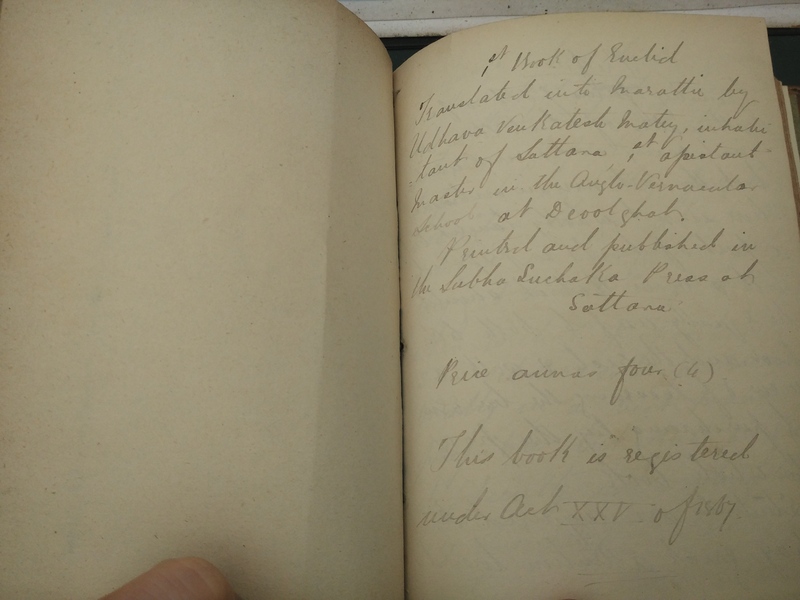 1st Book of Euclid
Translated into Marathi by
Udhava Venkatesh Matey, inhabi
tant of Sattara, 1st assistant
Master in the Anglo-Vernacular
School at Deoolghat.
Printed and published in
the Subha Suchaka Press at
Sattara
Price annas four (4)
This book is registered
under Act XXV of 1867